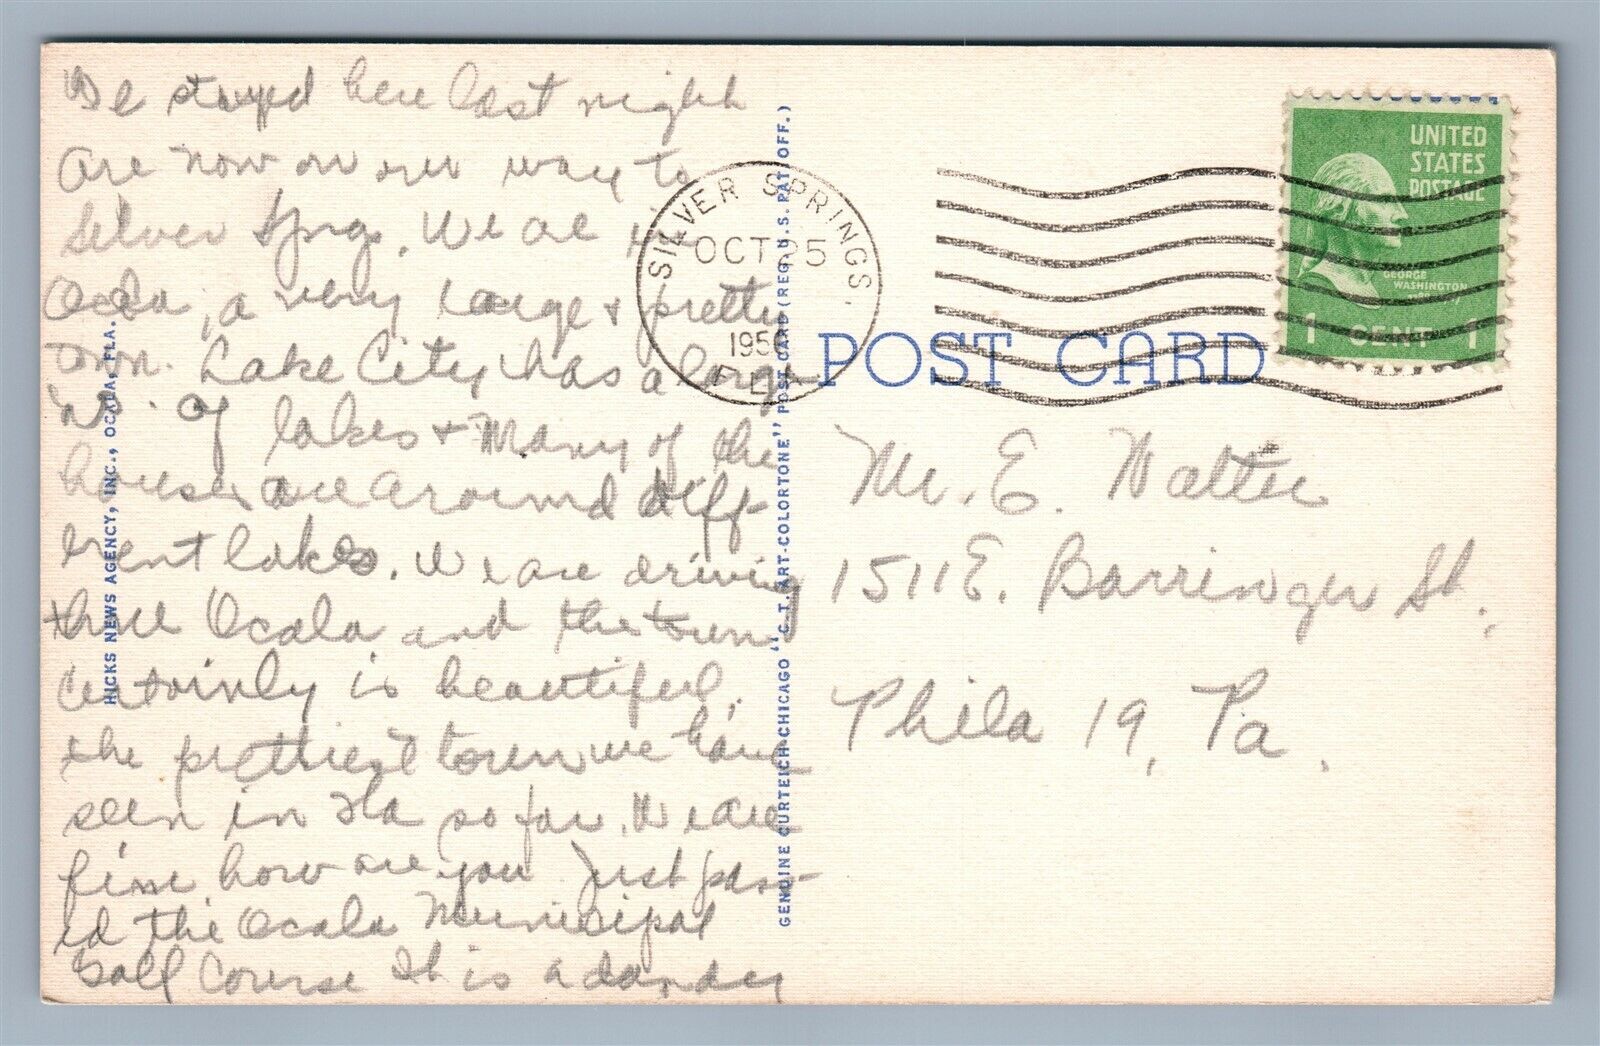 We stayed here last night
are now on our way to
Silver Spngs. We are in
Ocala, a very large + pretty
town. Lake City has a large
no. of lakes + many of the
houses are around diff-
erent lakes. We are driving
thru Ocala and the town
certainly is beautiful,
the prettiest town we have
seen in Fla so far. We are
fine how are you Just pass-
ed the Ocala Municipal
Golf Course It is a dandy
HICKS NEWS AGENCY, INC., OCALA, FLA.
GENUINE CURTEICH-CHICAGO "C.T. ART-COLORTONE" POST CARD (REG. U.S. PAT. OFF.)
SILVER SPRINGS,
OCT 25
1950
FLA
POST CARD
UNITED
STATES
POSTAGE
GEORGE
WASHINGTON
1 CENT 1
Mr. E. Walter
1511 E. Barringer St.,
Phila 19, Pa.